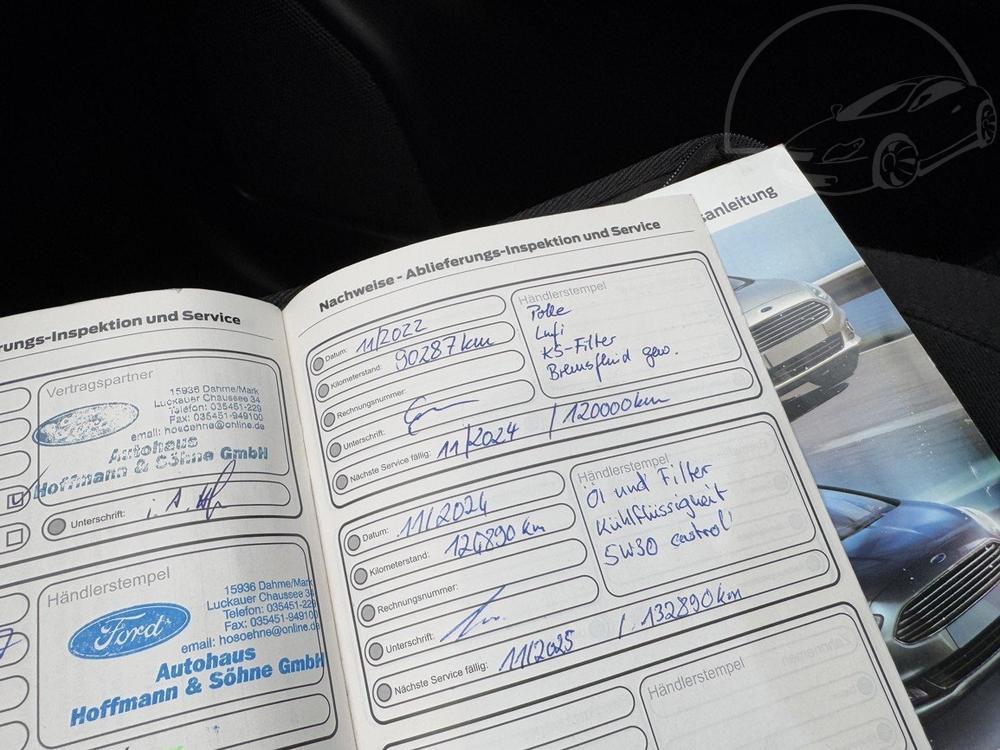 rungs-Inspektion und Service
Vertragspartner
Ford
15936 Dahme/Mark
Luckauer Chaussee 34
Telefon: 035451-229
Fax: 035451-949100
email: hosoehne@online.de
Autohaus
Hoffmann & Söhne GmbH
Unterschrift: i. A.
Händlerstempel
Ford
15936 Dahme/Mark
Luckauer Chaussee 34
Telefon: 035451-229
Fax: 035451-949
email: hosoehne@online.de
Autohaus
Hoffmann & Söhne GmbH
Nachweise - Ablieferungs-Inspektion und Service
Datum: 11/2022
Kilometerstand: 90287 km
Rechnungsnummer:
Unterschrift:
Nächste Service fällig: 11/2024 / 120000 km
Händlerstempel
Polle
Lufi
KS-Filter
Bremsfluid gew.
Datum: 11/2024
Kilometerstand: 124890 km
Rechnungsnummer:
Unterschrift:
Nächste Service fällig: 11/2025 / 132890 km
Händlerstempel
Öl und Filter
Kühlflüssigkeit
5W30 castrol
Händlerstempel
sanleitung